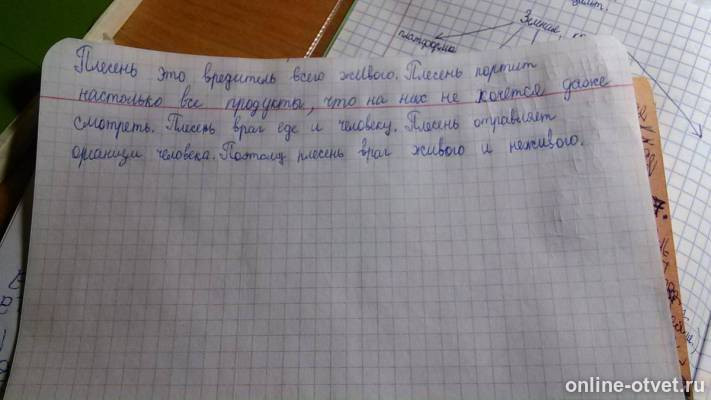 Плесень это вредитель всего живого. Плесень портит
настолько все продукты, что на них не хочется даже
смотреть. Плесень враг еде и человеку. Плесень отравляет
организм человека. Поэтому плесень враг живого и неживого.
платформа
online-otvet.ru